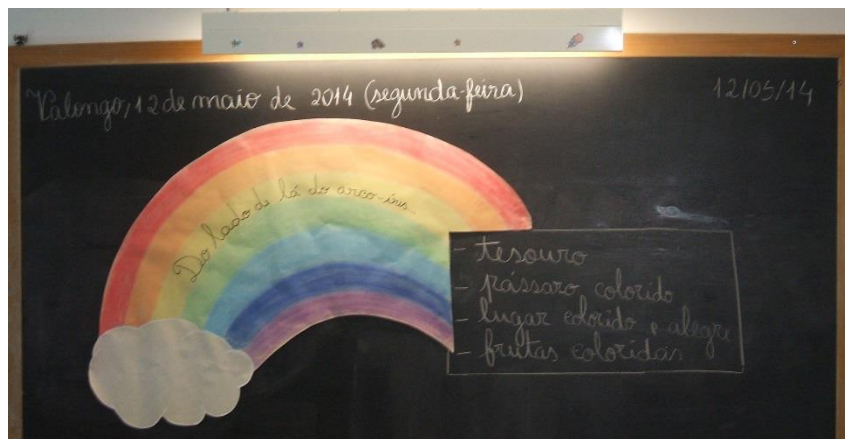 Valongo, 12 de maio de 2014 (segunda-feira)
12/05/14
Do lado de lá do arco-íris...
- tesouro
- pássaro colorido
- lugar colorido e alegre
- frutas coloridas